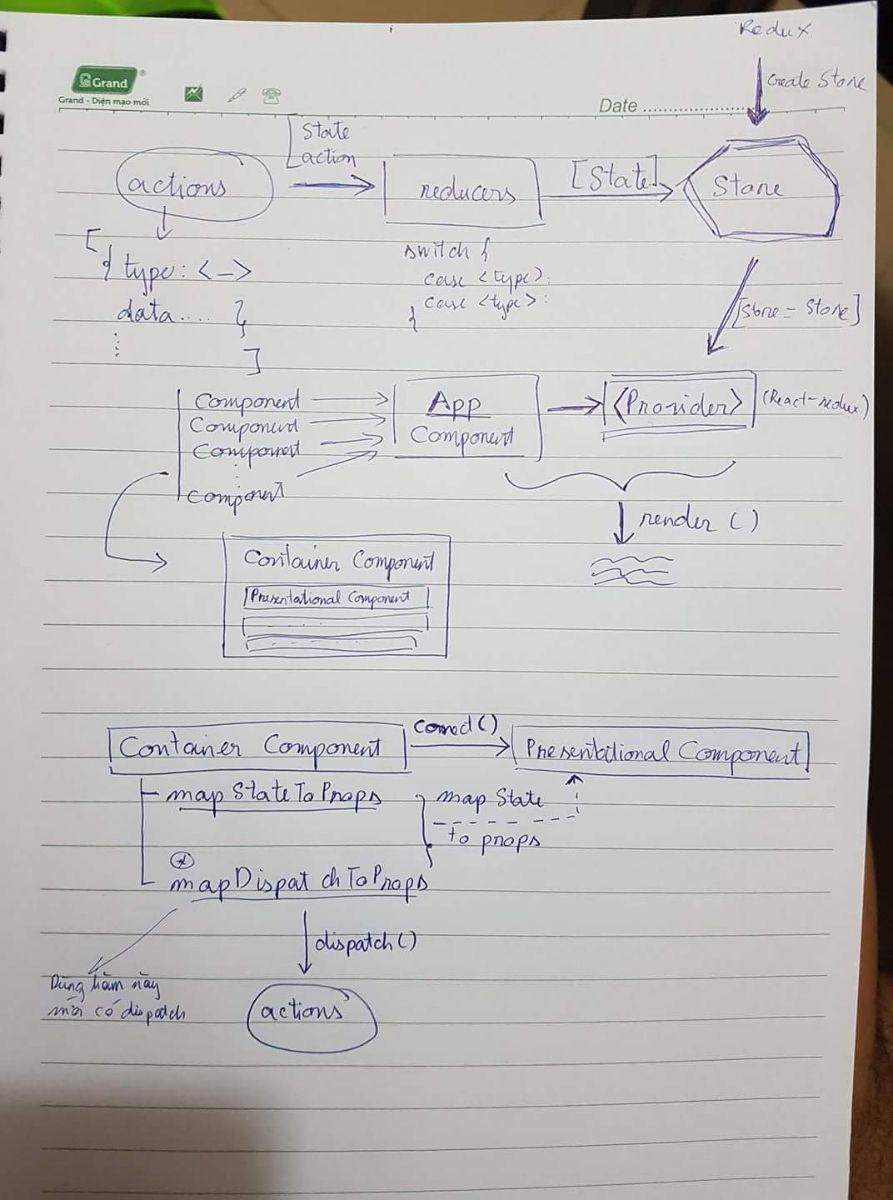 Redux
Create Store
Grand
Grand - Diện mạo mới
Date
State
action
actions
reducers
[State]
Store
[
{ type: <->
data.... }
]
switch {
case <type>:
case <type>:
}
[Store = Store]
Component
Component
Component
Component
App
Component
<Provider>
(React-redux)
render ()
Container Component
Presentational Component
Container Component
connect()
Presentational Component
mapStateToProps
map State
to props
mapDispatchToProps
dispatch()
Dùng hàm này
mới có dispatch
actions